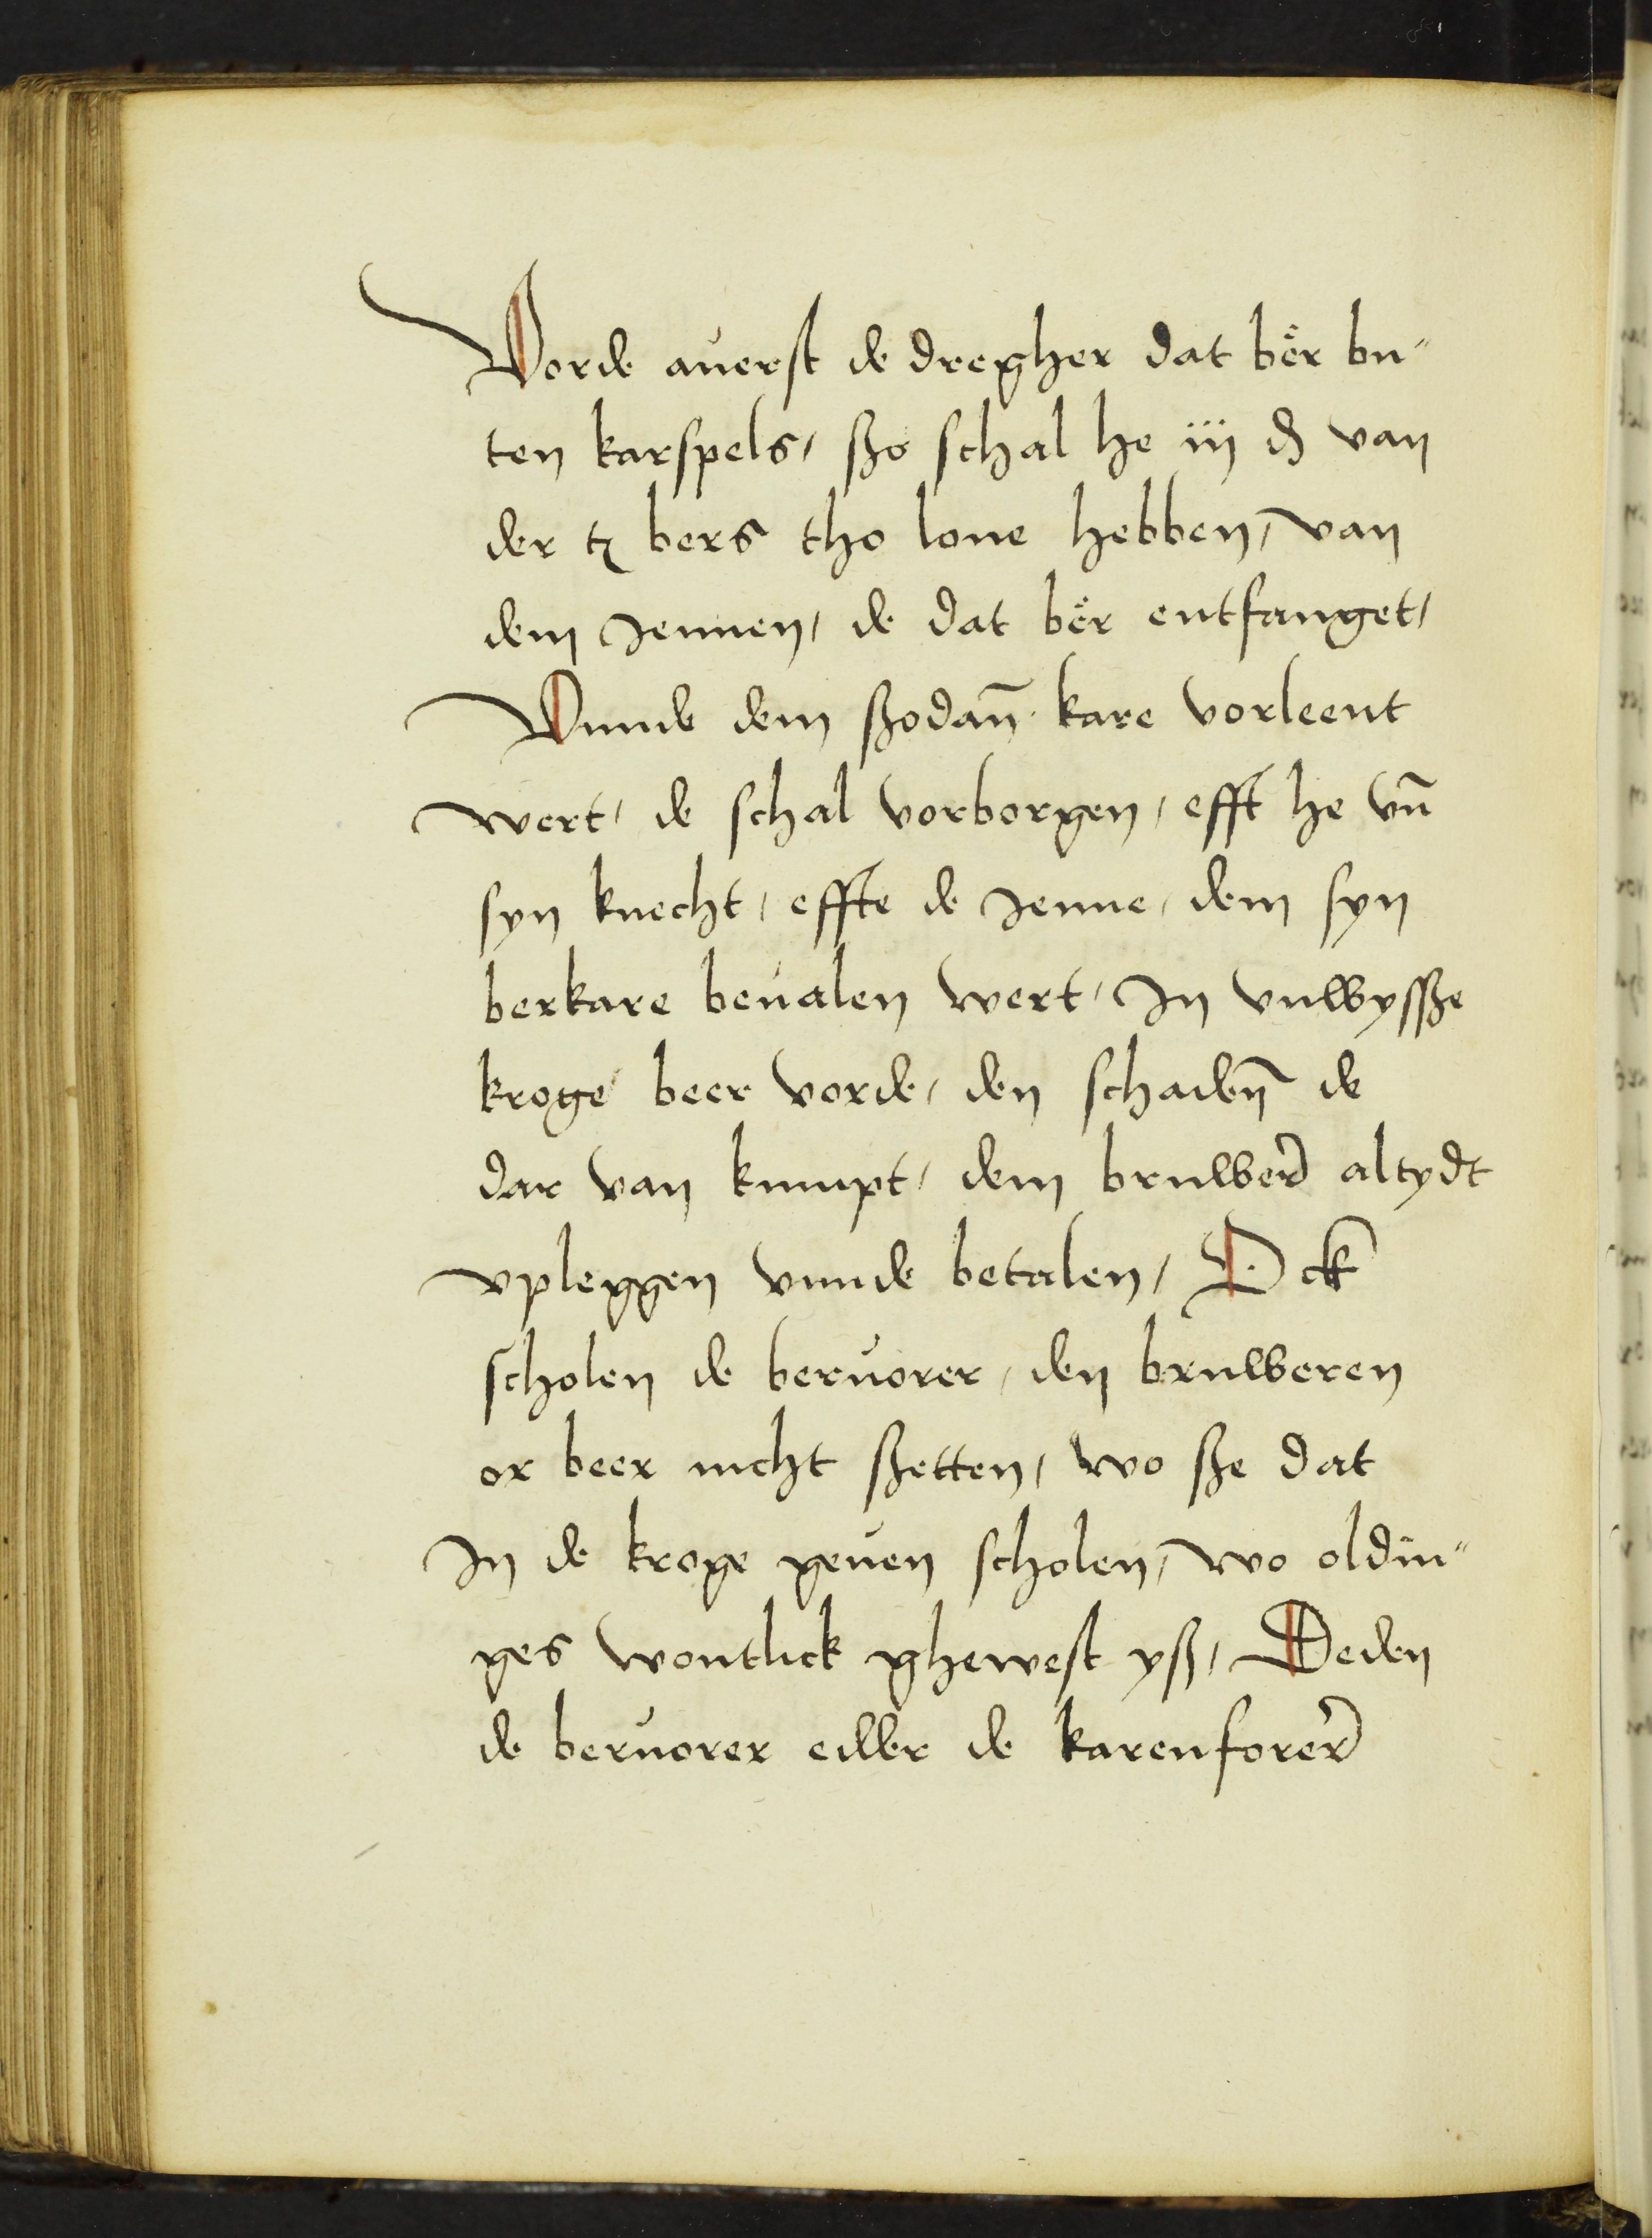 Vorde auerst de dregher dat bër bu-
ten karspels, ßo schal he iij ₰ van
der tz bers tho lone hebben, van
dem Jennen, de dat bër entfanget,
Vnnde dem ßodan̄ kare vorleent
wert, de schal vorborgen, efft he vn̄
syn knecht, effte de Jenne, dem syn
berkare beualen wert, In vnwysße
kroge beer vorde, den schaden̄ de
dar van kumpt, dem bruwer̄ altydt
vpleggen vnnde betalen, Ock
scholen de beruorer, den bruweren
or beer nicht ßetten, wo ße dat
In de kroge geuen scholen, wo oldin-
ges wontlick ghewest yß, Deden
de beruorer edder de karenforer̄